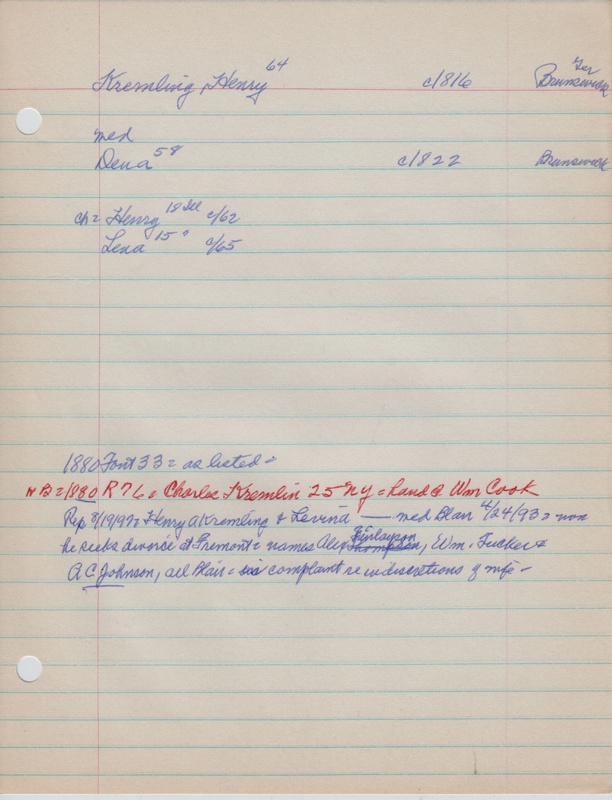 Kremling, Henry 64 c1816 Ger Brunswick
med
Dena 58 c1822 Brunswick
ch = Henry 18 Ill c/62
Lena 15 " c/65
1880 Font 33 = as listed =
NB = 1880 R76 = Charles Kremlin 25 NY = hand @ Wm Cook
Rep 8/19/97 = Henry A Kremling & Levina — med Blair 4/24/93 = now
he seeks divorce at Fremont = names Alex Thompson Finlayson, Wm. Tucker &
A C Johnson, all Blair = complaint re indiscretions of wife -